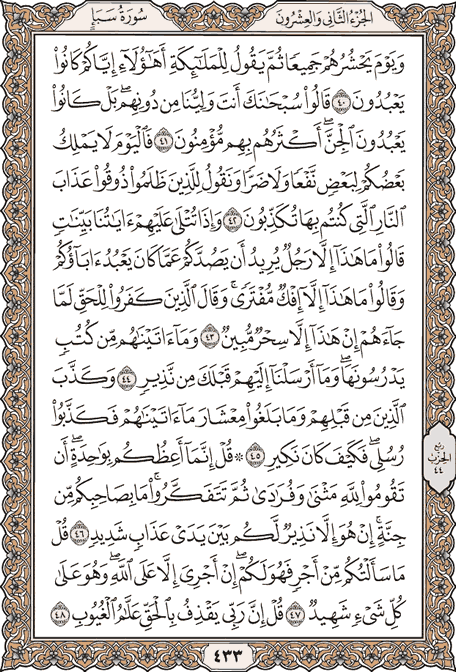 الجزء الثاني والعشرون
سورة سبأ
وَيَوْمَ يَحْشُرُهُمْ جَمِيعًا ثُمَّ يَقُولُ لِلْمَلَٰٓئِكَةِ أَهَٰٓؤُلَآءِ إِيَّاكُمْ كَانُوا۟
يَعْبُدُونَ ٤٠ قَالُوا۟ سُبْحَٰنَكَ أَنتَ وَلِيُّنَا مِن دُونِهِم ۖ بَلْ كَانُوا۟
يَعْبُدُونَ ٱلْجِنَّ ۖ أَكْثَرُهُم بِهِم مُّؤْمِنُونَ ٤١ فَٱلْيَوْمَ لَا يَمْلِكُ
بَعْضُكُمْ لِبَعْضٍ نَّفْعًا وَلَا ضَرًّا وَنَقُولُ لِلَّذِينَ ظَلَمُوا۟ ذُوقُوا۟ عَذَابَ
ٱلنَّارِ ٱلَّتِى كُنتُم بِهَا تُكَذِّبُونَ ٤٢ وَإِذَا تُتْلَىٰ عَلَيْهِمْ ءَايَٰتُنَا بَيِّنَٰتٍ
قَالُوا۟ مَا هَٰذَآ إِلَّا رَجُلٌ يُرِيدُ أَن يَصُدَّكُمْ عَمَّا كَانَ يَعْبُدُ ءَابَآؤُكُمْ
وَقَالُوا۟ مَا هَٰذَآ إِلَّآ إِفْكٌ مُّفْتَرًى ۚ وَقَالَ ٱلَّذِينَ كَفَرُوا۟ لِلْحَقِّ لَمَّا
جَآءَهُمْ إِنْ هَٰذَآ إِلَّا سِحْرٌ مُّبِينٌ ٤٣ وَمَآ ءَاتَيْنَٰهُم مِّن كُتُبٍ
يَدْرُسُونَهَا ۖ وَمَآ أَرْسَلْنَآ إِلَيْهِمْ قَبْلَكَ مِن نَّذِيرٍ ٤٤ وَكَذَّبَ
ٱلَّذِينَ مِن قَبْلِهِمْ وَمَا بَلَغُوا۟ مِعْشَارَ مَآ ءَاتَيْنَٰهُمْ فَكَذَّبُوا۟
رُسُلِى ۖ فَكَيْفَ كَانَ نَكِيرِ ٤٥ ۞ قُلْ إِنَّمَآ أَعِظُكُم بِوَٰحِدَةٍ ۖ أَن
تَقُومُوا۟ لِلَّهِ مَثْنَىٰ وَفُرَٰدَىٰ ثُمَّ تَتَفَكَّرُوا۟ ۚ مَا بِصَاحِبِكُم مِّن
جِنَّةٍ ۚ إِنْ هُوَ إِلَّا نَذِيرٌ لَّكُم بَيْنَ يَدَىْ عَذَابٍ شَدِيدٍ ٤٦ قُلْ
مَا سَأَلْتُكُم مِّنْ أَجْرٍ فَهُوَ لَكُمْ ۖ إِنْ أَجْرِىَ إِلَّا عَلَى ٱللَّهِ ۖ وَهُوَ عَلَىٰ
كُلِّ شَىْءٍ شَهِيدٌ ٤٧ قُلْ إِنَّ رَبِّى يَقْذِفُ بِٱلْحَقِّ عَلَّٰمُ ٱلْغُيُوبِ ٤٨
ربع
الحزب
٤٤
٤٣٣